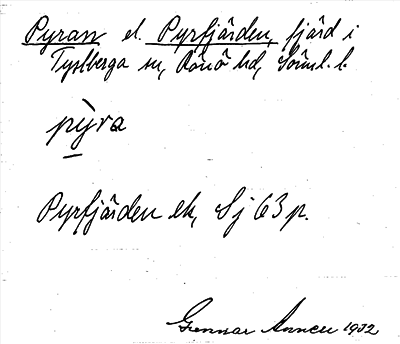 Pyran el. Pyrfjärden, fjärd i
Tystberga sn, Rönö hd, Söml. l.
pỳra
Pyrfjärden ek, Sj 63 p.
Gunnar Annell 1932